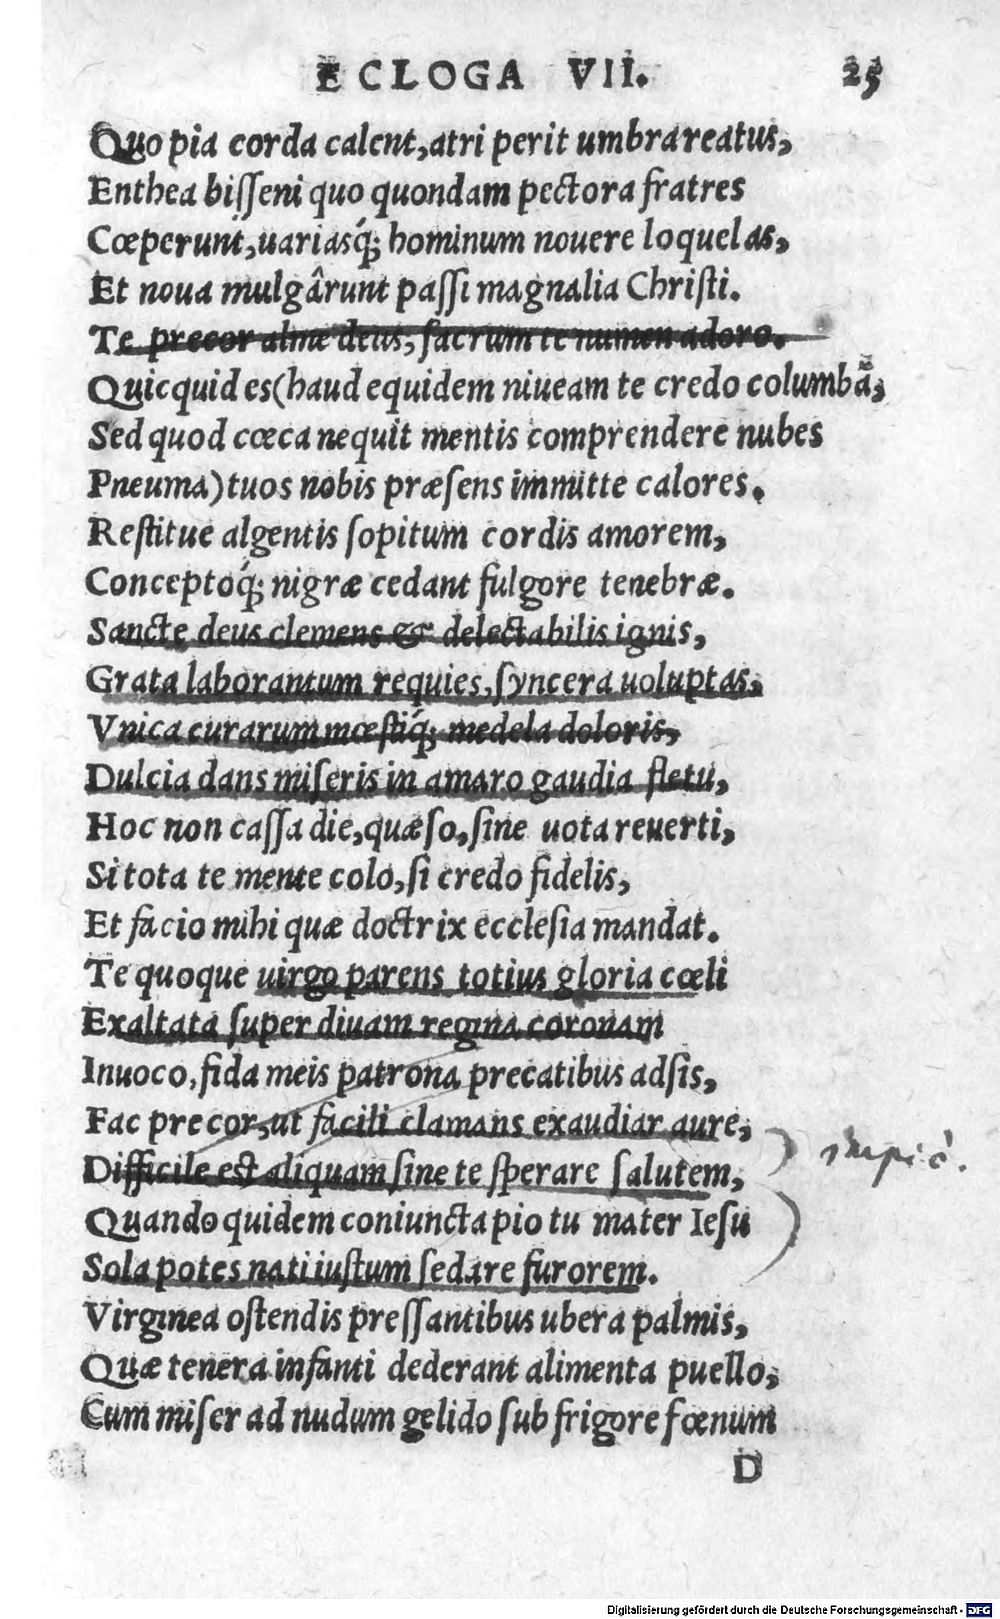 ECLOGA VII. 25
Quo pia corda calent, atri perit umbra reatus,
Enthea bisſeni quo quondam pectora fratres
Cœperunt, uariasq́; hominum nouere loquelas,
Et noua mulgârunt pasſi magnalia Chriſti.
Te precor alme deus, ſacrum te numen adoro.
Quicquid es (haud equidem niueam te credo columbã,
Sed quod cœca nequit mentis comprendere nubes
Pneuma) tuos nobis præſens immitte calores.
Reſtitue algentis ſopitum cordis amorem,
Conceptoq́; nigræ cedant fulgore tenebræ.
Sancte deus clemens & delectabilis ignis,
Grata laborantum requies, ſyncera uoluptas,
Vnica curarum mœſtiq́; medela doloris,
Dulcia dans miſeris in amaro gaudia fletu,
Hoc non casſa die, quæſo, ſine uota reuerti,
Si tota te mente colo, ſi credo fidelis,
Et facio mihi quæ doctrix eccleſia mandat.
Te quoque uirgo parens totius gloria cœli
Exaltata ſuper diuam regina coronam
Inuoco, fida meis patrona precatibus adſis,
Fac precor, ut facili clamans exaudiar aure,
Difficile est aliquam ſine te ſperare ſalutem,
impiè.
Quando quidem coniuncta pio tu mater Ieſu
Sola potes nati iuſtum ſedare furorem.
Virginea oſtendis presſantibus ubera palmis,
Quæ tenera infanti dederant alimenta puello,
Cum miſer ad nudum gelido ſub frigore fœnum
D
Digitalisierung gefördert durch die Deutsche Forschungsgemeinschaft - DFG